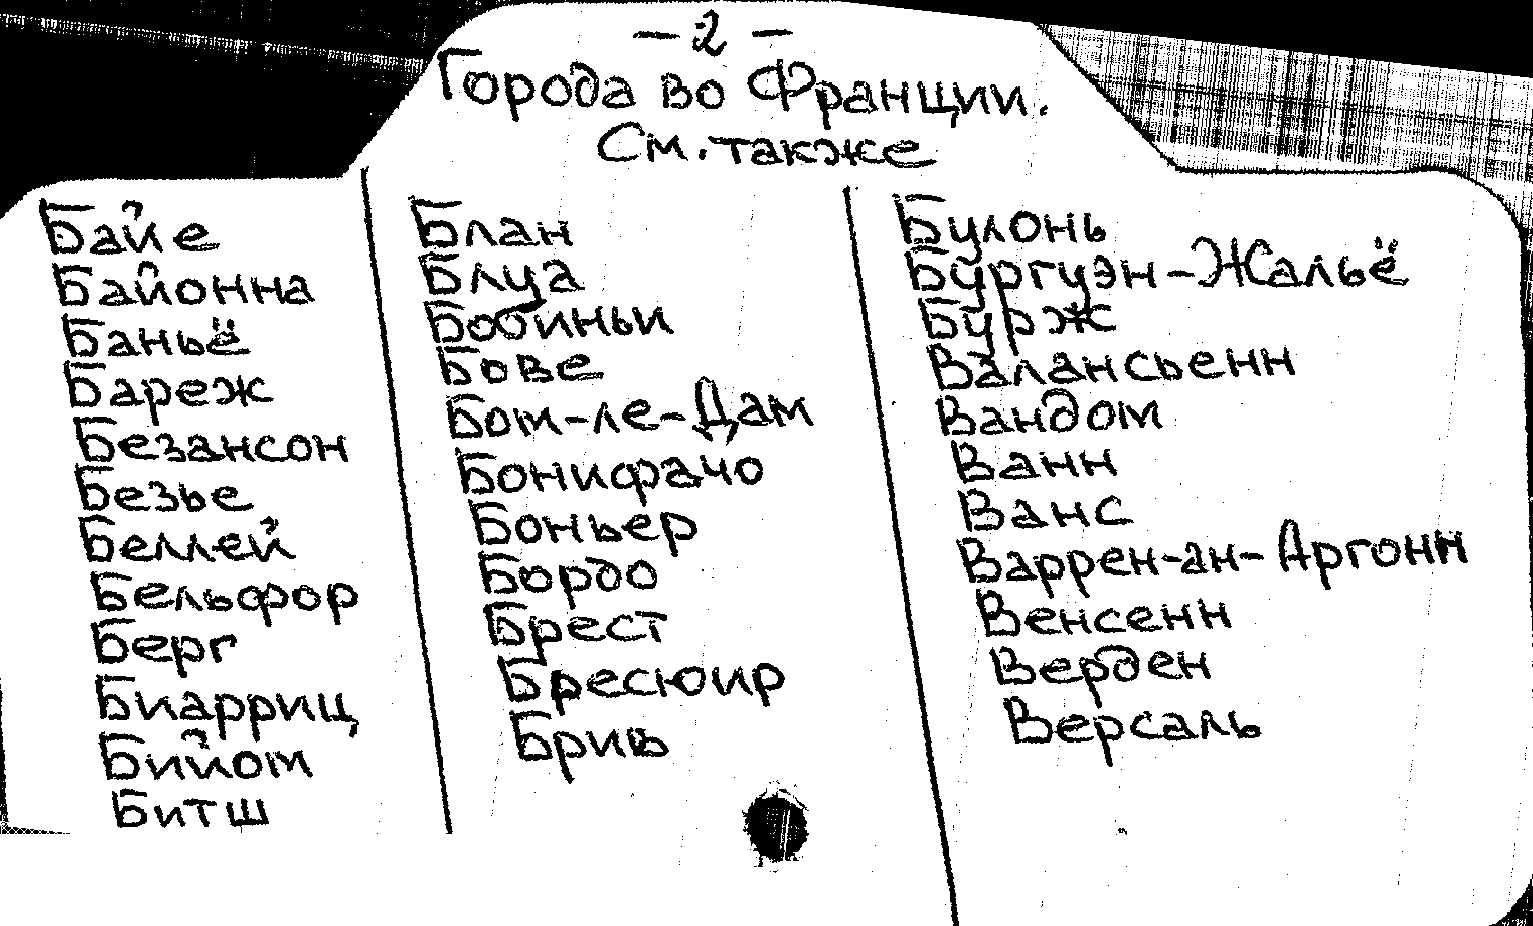 — 2 —
Города во Франции.
См. также
Байе
Байонна
Баньё
Бареж
Безансон
Безье
Беллей
Бельфор
Берг
Биарриц
Бийом
Битш
Блан
Блуа
Бобиньи
Бове
Бом-ле-Дам
Бонифачо
Боньер
Бордо
Брест
Бресюир
Брив
Булонь
Бургуэн-Жальё
Бурж
Валансьенн
Вандом
Ванн
Ванс
Варрен-ан-Аргонн
Венсенн
Верден
Версаль